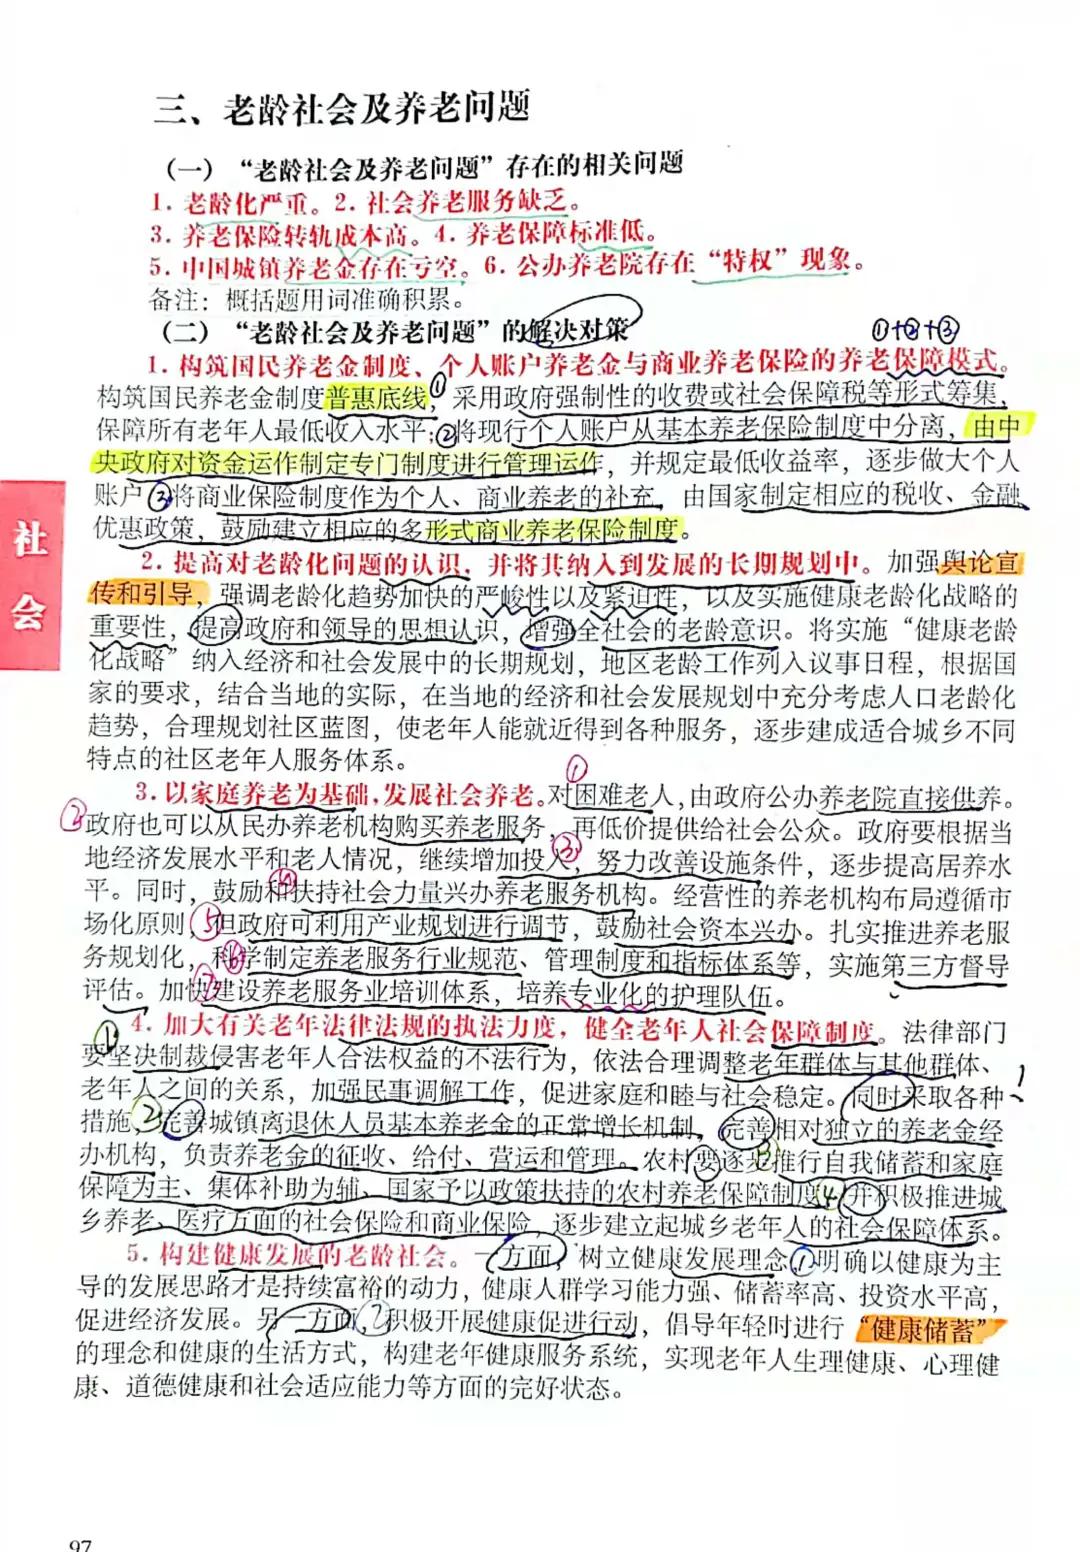 三、老龄社会及养老问题
（一）“老龄社会及养老问题”存在的相关问题
1. 老龄化严重。2. 社会养老服务缺乏。
3. 养老保险转轨成本高。4. 养老保障标准低。
5. 中国城镇养老金存在亏空。6. 公办养老院存在“特权”现象。
备注：概括题用词准确积累。
（二）“老龄社会及养老问题”的解决对策
①+②+③
1. 构筑国民养老金制度、个人账户养老金与商业养老保险的养老保障模式。
构筑国民养老金制度普惠底线①，采用政府强制性的收费或社会保障税等形式筹集，
保障所有老年人最低收入水平；②将现行个人账户从基本养老保险制度中分离，由中
央政府对资金运作制定专门制度进行管理运作，并规定最低收益率，逐步做大个人
账户③将商业保险制度作为个人、商业养老的补充，由国家制定相应的税收、金融
优惠政策，鼓励建立相应的多形式商业养老保险制度。
2. 提高对老龄化问题的认识，并将其纳入到发展的长期规划中。加强舆论宣
传和引导，强调老龄化趋势加快的严峻性以及紧迫性，以及实施健康老龄化战略的
重要性，提高政府和领导的思想认识，增强全社会的老龄意识。将实施“健康老龄
化战略”纳入经济和社会发展中的长期规划，地区老龄工作列入议事日程，根据国
家的要求，结合当地的实际，在当地的经济和社会发展规划中充分考虑人口老龄化
趋势，合理规划社区蓝图，使老年人能就近得到各种服务，逐步建成适合城乡不同
特点的社区老年人服务体系。
①
3. 以家庭养老为基础，发展社会养老。对困难老人，由政府公办养老院直接供养。
②政府也可以从民办养老机构购买养老服务，再低价提供给社会公众。政府要根据当
地经济发展水平和老人情况，继续增加投入③，努力改善设施条件，逐步提高居养水
平。同时，鼓励和④扶持社会力量兴办养老服务机构。经营性的养老机构布局遵循市
场化原则⑤但政府可利用产业规划进行调节，鼓励社会资本兴办。扎实推进养老服
务规划化，科⑥学制定养老服务行业规范、管理制度和指标体系等，实施第三方督导
评估。加快⑦建设养老服务业培训体系，培养专业化的护理队伍。
4. 加大有关老年法律法规的执法力度，健全老年人社会保障制度。法律部门
①要坚决制裁侵害老年人合法权益的不法行为，依法合理调整老年群体与其他群体、
老年人之间的关系，加强民事调解工作，促进家庭和睦与社会稳定。同时采取各种
措施②完善城镇离退休人员基本养老金的正常增长机制，完善相对独立的养老金经
办机构，负责养老金的征收、给付、营运和管理。农村要逐步③推行自我储蓄和家庭
保障为主、集体补助为辅、国家予以政策扶持的农村养老保障制度④并积极推进城
乡养老、医疗方面的社会保险和商业保险，逐步建立起城乡老年人的社会保障体系。
5. 构建健康发展的老龄社会。一方面，树立健康发展理念①明确以健康为主
导的发展思路才是持续富裕的动力，健康人群学习能力强、储蓄率高、投资水平高，
促进经济发展。另一方面，②积极开展健康促进行动，倡导年轻时进行“健康储蓄”
的理念和健康的生活方式，构建老年健康服务系统，实现老年人生理健康、心理健
康、道德健康和社会适应能力等方面的完好状态。
社
会
97